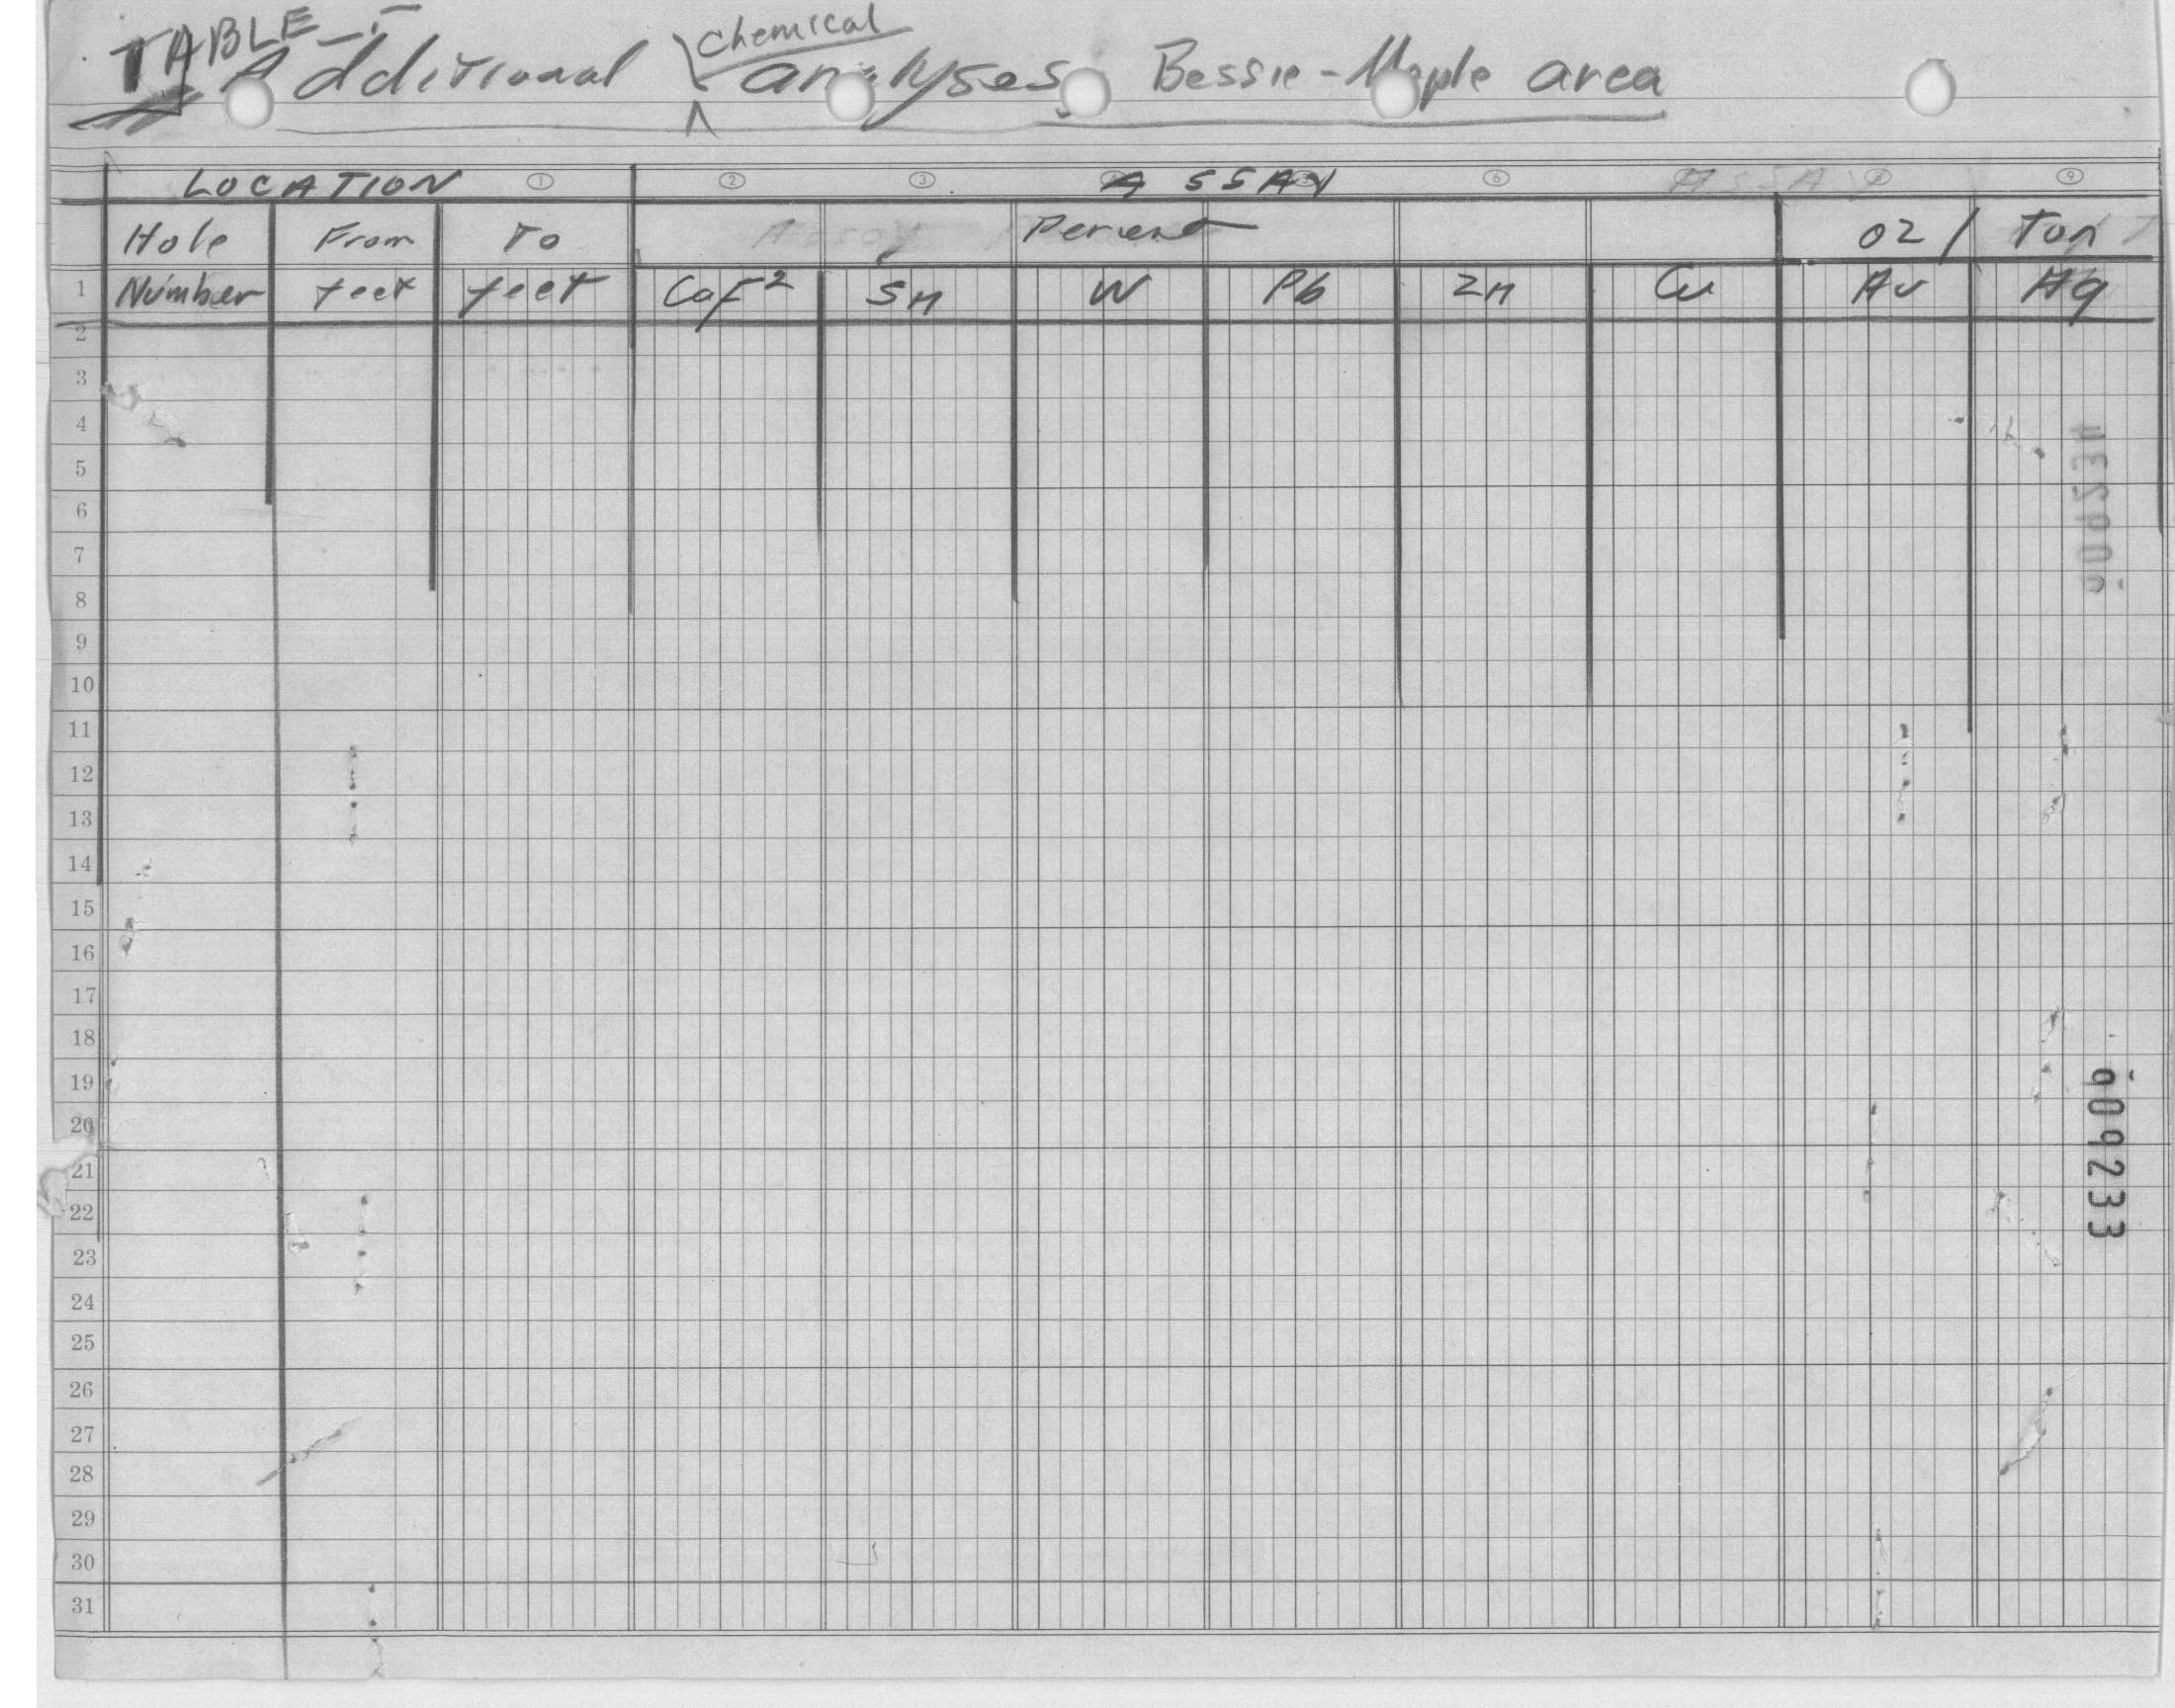 TABLE
Additional chemical analyses, Bessie-Maple area
LOCATION ① ② ③ ASSAY ⑥ ASSAY ⑨
Hole From To Percent oz / Ton
1 Number feet feet CaF2 Sn W Pb Zn Cu Au Ag
2
3
4
5
6
7
8
9
10
11
12
13
14
15
16
17
18
19
20
21
22
23
24
25
26
27
28
29
30
31